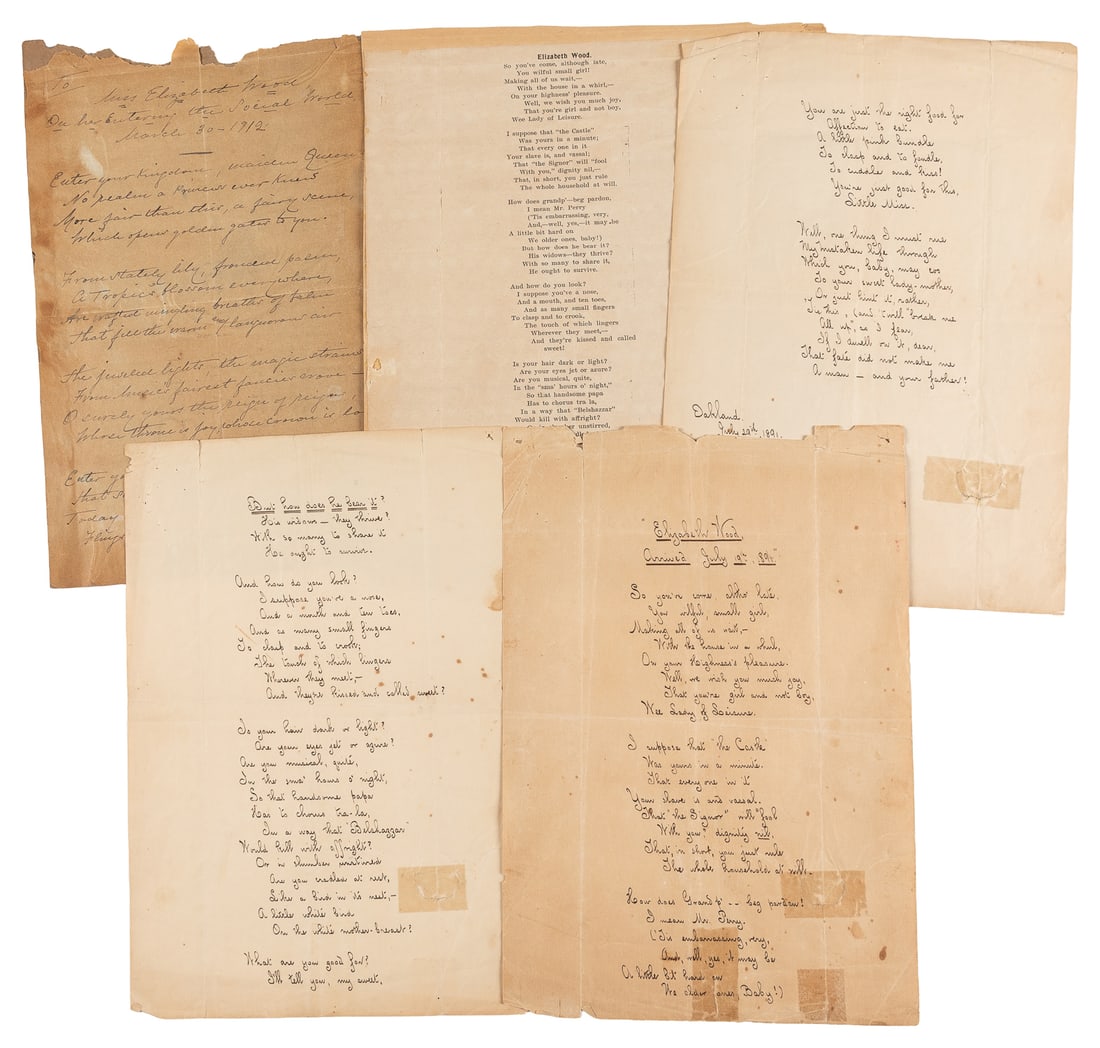 To
Miss Elizabeth Wood
On her Entering the Social World,
March 30 - 1912
Enter your kingdom, maiden Queen
No realm a Princess ever knew
More fair than this, a fairy scene,
Which opens golden gates to you.
From stately lily, fronded palm,
A Tropic's blossom everywhere,
Are wafted breaths of
That fill the warm languorous air
The jeweled lights, the magic strains
From Music's fairest
O surely yours the reign of reigns,
Whose throne is joy, whose crown is lo
Enter yo
That
Today
Flings
Elizabeth Wood.
So you've come, although late,
You wilful small girl!
Making all of us wait,—
With the house in a whirl,—
On your highness' pleasure.
Well, we wish you much joy,
That you're girl and not boy,
Wee Lady of Leisure.
I suppose that "the Castle"
Was yours in a minute;
That every one in it
Your slave is, and vassal;
That "the Signor" will "fool
With you," dignity nil,—
That, in short, you just rule
The whole household at will.
How does grandp'—beg pardon,
I mean Mr. Perry
('Tis embarrassing, very,
And,—well, yes,—it may be
A little bit hard on
We older ones, baby!)
But how does he bear it?
His widows—they thrive?
With so many to share it,
He ought to survive.
And how do you look?
I suppose you've a nose,
And a mouth, and ten toes,
And as many small fingers
To clasp and to crook,
The touch of which lingers
Wherever they meet,—
And they're kissed and called
sweet!
Is your hair dark or light?
Are your eyes jet or azure?
Are you musical, quite,
In the "sma' hours o' night,"
So that handsome papa
Has to chorus tra la,
In a way that "Belshazzar"
Would kill with affright?
Or in slumber unstirred,
You are just the right food for
Affection to eat.
A little pink bundle
To clasp and to fondle,
To cuddle and kiss!
You're just good for this,
Little Miss.
Well, one thing I must rue
My mistaken life through
Which you, baby, may coo
To your sweet lady-mother,
Or just hint it, rather,
Tis this, (and 'twill break me
All up, as I fear,
If I dwell on it, dear,
That fate did not make me
A man — and your father!
Oakland.
July 29th, 1891.
But how does he bear it?
His widows — they thrive?
With so many to share it
He ought to survive.
And how do you look?
I suppose you've a nose,
And a mouth and ten toes,
And as many small fingers
To clasp and to crook;
The touch of which lingers
Wherever they meet,—
And they're kissed and called sweet?
Is your hair dark or light?
Are your eyes jet or azure?
Are you musical, quite,
In the sma' hours o' night,
So that handsome papa
Has to chorus tra-la,
In a way that "Belshazzar"
Would kill with affright?
Or in slumber unstirred
Are you cradled at rest,
Like a bird in its nest,—
A little white bird
On the white mother-breast?
What are you good for?
I'll tell you, my sweet,
"Elizabeth Wood,
Arrived July 19th, 1891."
So you've come, altho' late,
You wilful, small girl,
Making all of us wait,—
With the house in a whirl,
On your Highness's pleasure.
Well, we wish you much joy,
That you're girl and not boy,
Wee Lady of Leisure.
I suppose that "the Castle"
Was yours in a minute.
That everyone in it
Your slave is and vassal.
That "the Signor" will "fool
With you," dignity nil,
That, in short, you just rule
The whole household at will.
How does Grandp' -- beg pardon!
I mean Mr. Perry.
('Tis embarrassing, very,
And, well, yes, it may be
A little bit hard on
We older ones, Baby!)